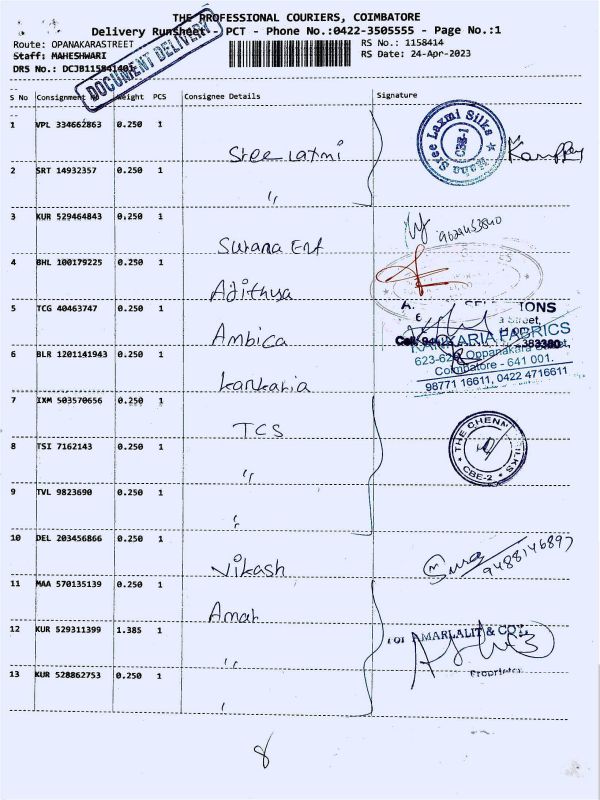 THE PROFESSIONAL COURIERS, COIMBATORE
Delivery Runsheet - PCT - Phone No.:0422-3505555 - Page No.:1
Route: OPANAKARASTREET
RS No.: 1158414
Staff: MAHESHWARI
RS Date: 24-Apr-2023
DRS No.: DCJB115841401
DOCUMENT DELIVERY
S No Consignment Weight PCS Consignee Details Signature
1 VPL 334662863 0.250 1 Sree Laxmi
Sree Laxmi Silks
CBE-1
2 SRT 14932357 0.250 1 "
3 KUR 529464843 0.250 1 Surana Ent
4 BHL 100179225 0.250 1 Adithya
5 TCG 40463747 0.250 1 Ambica
6 BLR 1201141943 0.250 1 kankaria
KANKARIA FABRICS
Oppanakara Street,
Coimbatore - 641 001.
98771 16611, 0422 4716611
7 IXM 503570656 0.250 1 TCS
THE CHENNAI SILKS
CBE-2
8 TSI 7162143 0.250 1 "
9 TVL 9823690 0.250 1 "
10 DEL 203456866 0.250 1 Vikash
9488146897
11 MAA 570135139 0.250 1 Amar
12 KUR 529311399 1.385 1 "
For AMARLALIT & CO.,
Proprietor
13 KUR 528862753 0.250 1 "
8